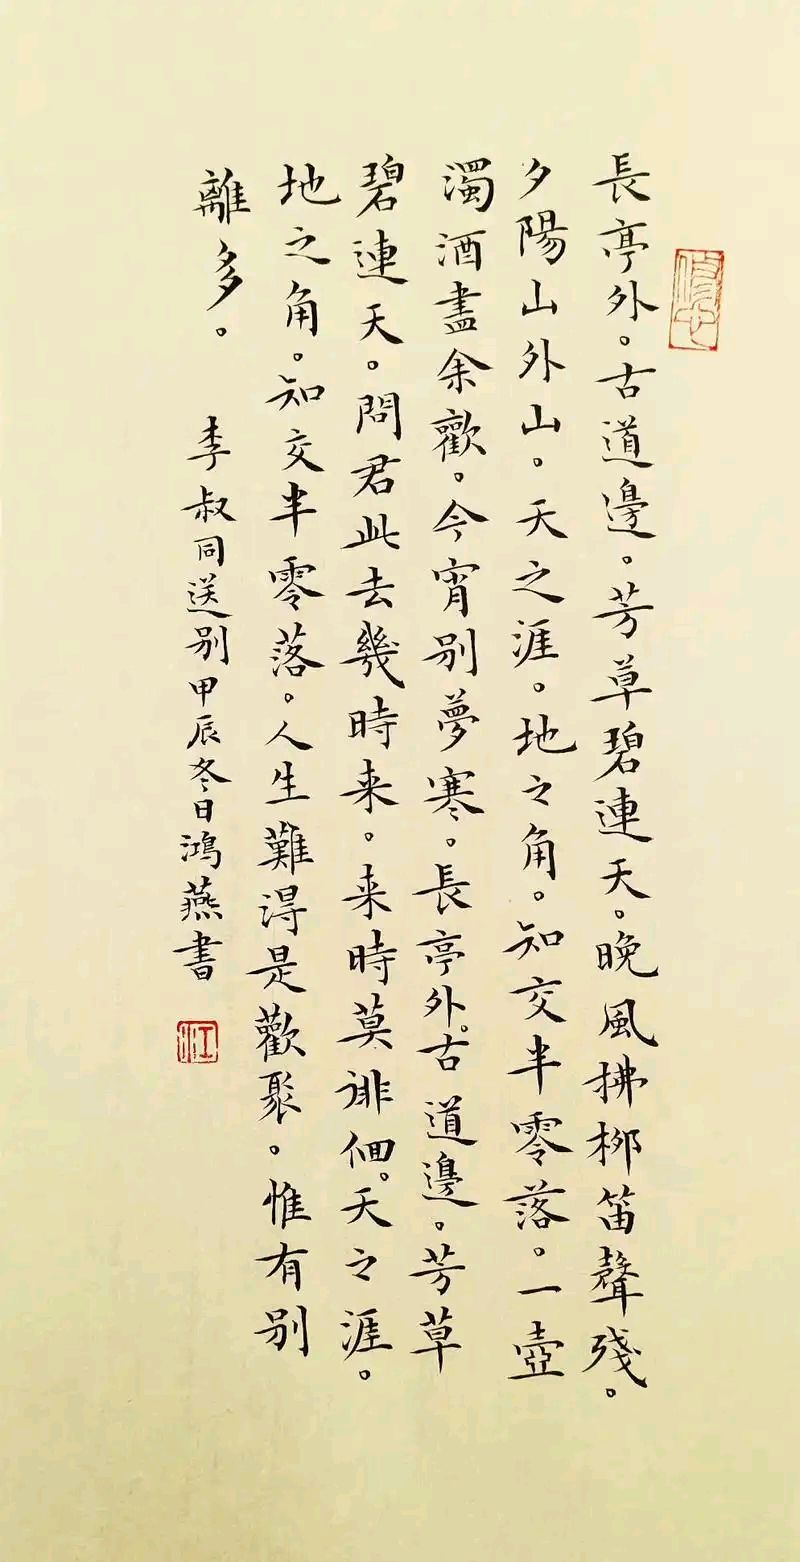 長亭外。古道邊。芳草碧連天。晚風拂柳笛聲殘。
夕陽山外山。天之涯。地之角。知交半零落。一壺
濁酒盡余歡。今宵别夢寒。長亭外。古道邊。芳草
碧連天。問君此去幾時来。来時莫徘徊。天之涯。
地之角。知交半零落。人生難得是歡聚。惟有别
離多。
李叔同送别甲辰冬日鴻燕書
江